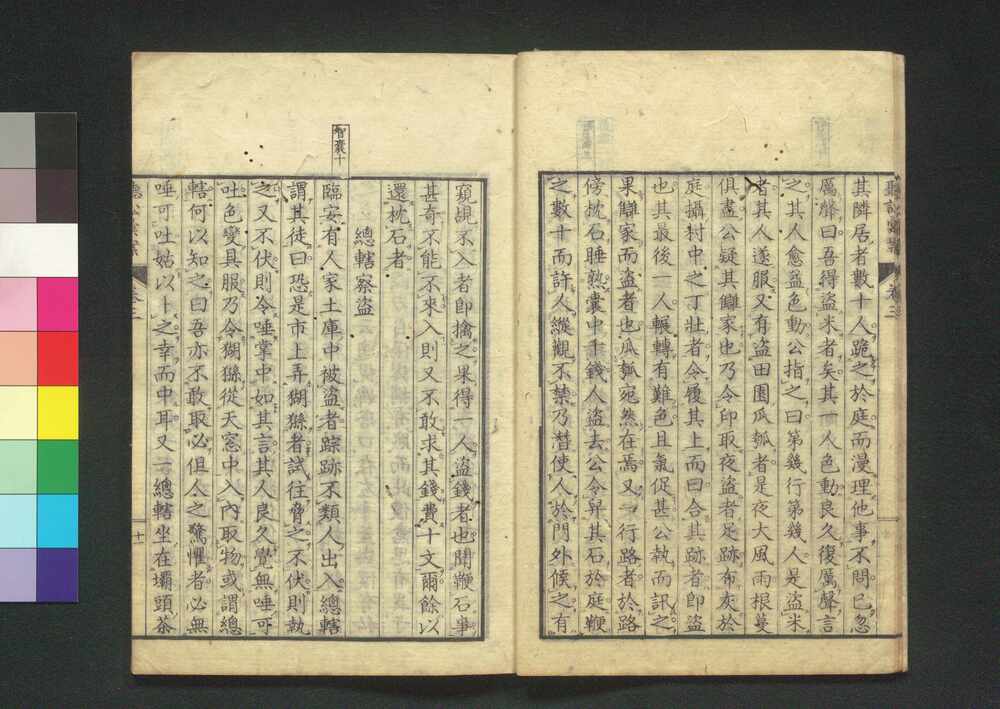 其隣居者數十人跪之於庭而漫理他事不問已忽
厲聲曰吾得盜米者矣其一人色動良久復厲聲言
之其人愈益色動公指之曰第幾行第幾人是盜米
者其人遂服又有盜田園瓜瓠者是夜大風雨根蔓
俱盡公疑其讎家也乃令印取夜盜者足跡布灰於
庭攝村中之丁壯者令履其上而曰合其跡者即盜
也其最後一人輾轉有難色且氣促甚公執而訊之
果讎家而盜者也瓜瓠宛然在焉又一行路者於路
傍枕石睡熟囊中千錢人盜去公令舁其石於庭鞭
之數十而許人縱觀不禁乃潛使人於門外候之有
卷三
窺覘不入者即擒之果得一人盜錢者也聞鞭石事
甚奇不能不來入則又不敢求其錢費十文爾餘以
還枕石者
總轄察盜
智囊十
臨安有人家土庫中被盜者踪跡不類人出入總轄
謂其徒曰恐是市上弄猢猻者試往脅之不伏則執
之又不伏則令唾掌中如其言其人良久覺無唾可
吐色變具服乃令猢猻從天窓中入內取物或謂總
轄何以知之曰吾亦不敢取必但人之驚懼者必無
唾可吐姑以卜之幸而中耳又一總轄坐在壩頭茶
卷三
十